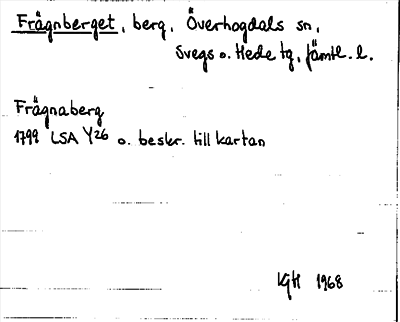 Frägnberget, berg, Överhogdals sn,
Svegs o. Hede tg, Jämtl. l.
Frägnaberg
1799 LSA Y26 o. beskr. till kartan
KgH 1968